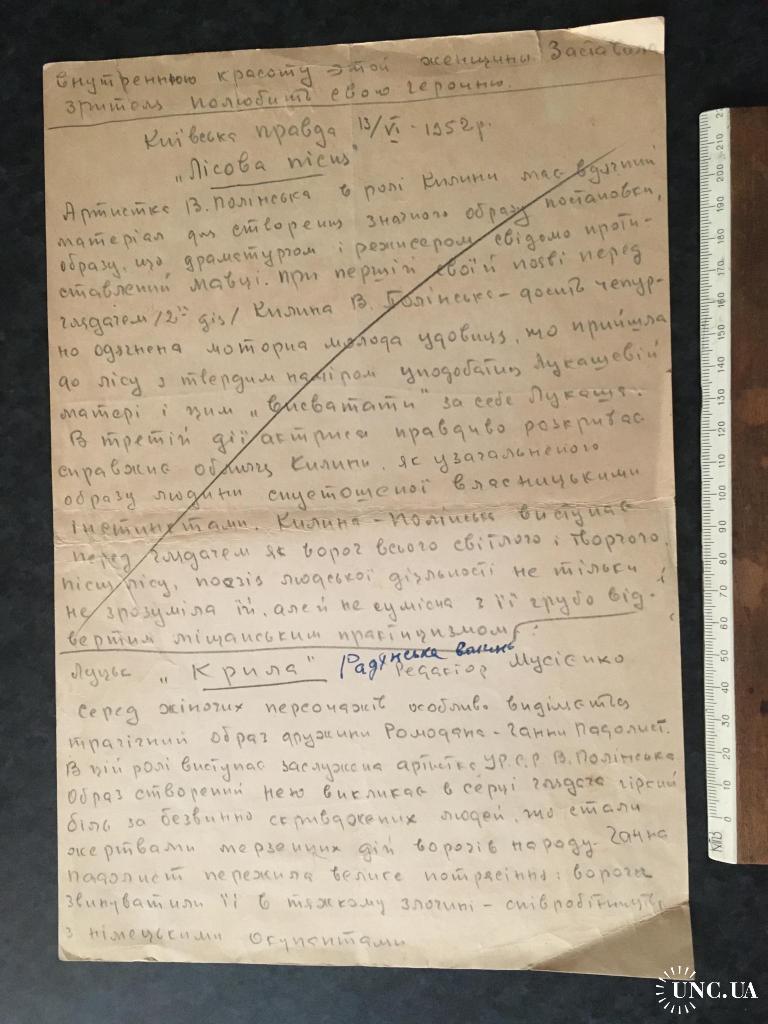 внутреннюю красоту этой женщины Заставила
зрителя полюбить свою героиню.
Київська правда 13/VI - 1952 р.
"Лісова пісня"
Артистка В. Полінська в ролі Килини має вдячний
матеріал для створення значного образу постановки,
образу, що драматургом і режисером свідомо проти-
ставлений мавці. При першій своїй появі перед
глядачем /2ій дія/ Килина В. Полінська - досить чепур-
но одягнена моторна молода удовиця, що прийшла
до лісу з твердим наміром уподобатись Лукашевій
матері і цим "висватати" за себе Лукаша.
В третій дії актриса правдиво розкриває
справжнє обличчя Килини, як узагальненого
образу людини спустошеної власницькими
інстинктами. Килина - Полінська виступає
перед глядачем як ворог всього світлого і творчого.
пісня лісу, поезія людської діяльності не тільки
не зрозуміла їй, але й не сумісна з її грубо від-
вертим міщанським практицизмом.
Луцьк "Крила" Радянська волинь
Редактор Мусієнко
Серед жіночих персонажів особливо виділяється
трагічний образ дружини Ромодана - Ганни Падолист.
В цій ролі виступає заслужена артистка УР.С.Р В. Полінська
Образ створений нею викликає в серці глядача гіркий
біль за безвинно скривджених людей, що стали
жертвами мерзенних дій ворогів народу. Ганна
Падолист пережила велике потрясіння: вороги
звинуватили її в тяжкому злочині - співробітництві
з німецькими окупантами
20 30 40 50 60 70 80 90 100 110 120 130 140 150 160 170 180 190 200 210
UNC.UA